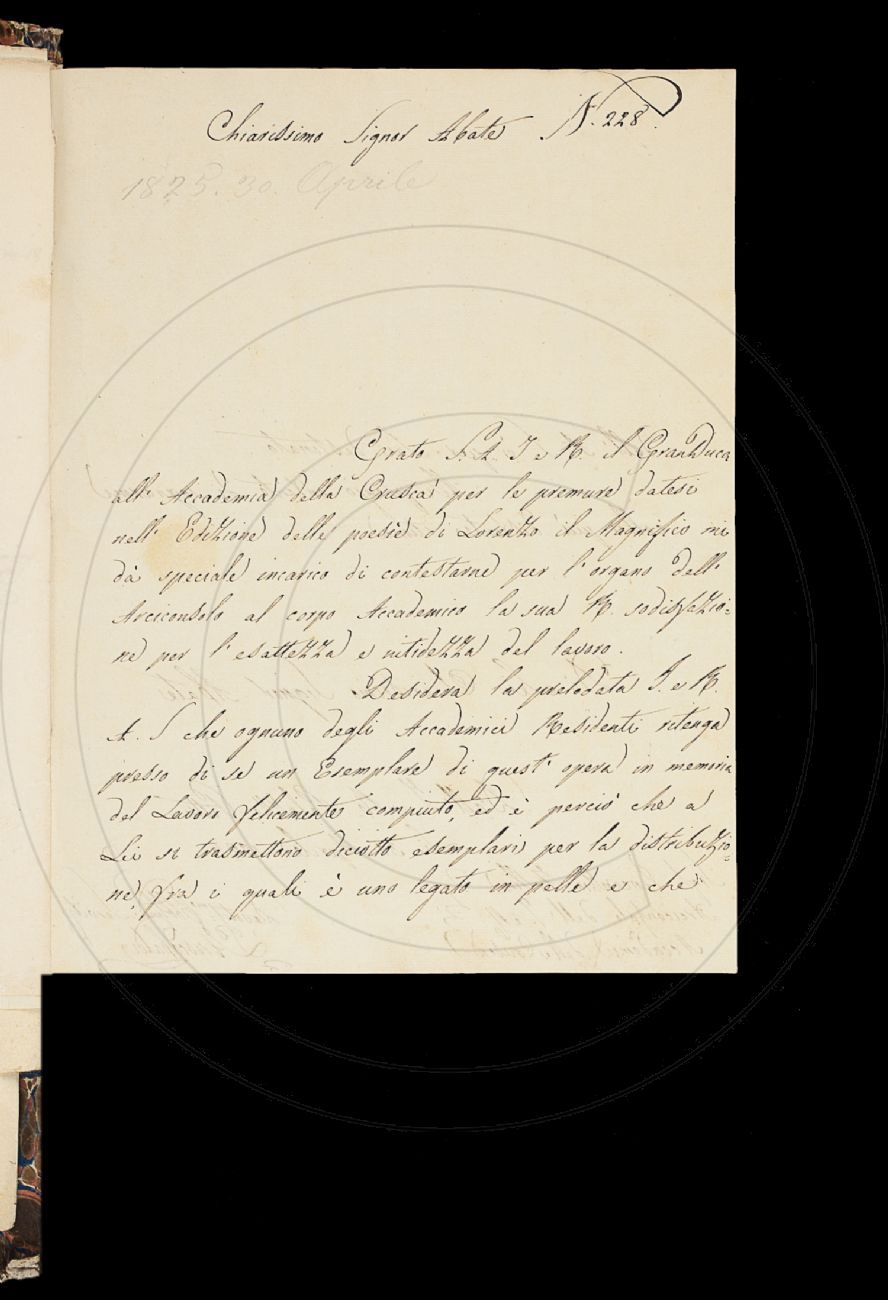 Chiarissimo Signor Abate N. 228.
1825. 30. Aprile
Grato S. A. I. e R. il GranDuca
all' Accademia della Crusca per le premure datesi
nell' Edizione delle poesie di Lorenzo il Magnifico mi
dà speciale incarico di contestarne per l'organo dell'
Arciconsolo al corpo Accademico la sua R. sodisfazio=
ne per l'esattezza e nitidezza del lavoro.
Desidera la prelodata I. e R.
A. S che ognuno degli Accademici Residenti ritenga
presso di se un Esemplare di quest' opera in memoria
del Lavoro felicemente compiuto, ed è perciò che a
Lei si trasmettono diciotto esemplari per la distribuzio=
ne, fra i quali è uno legato in pelle e che